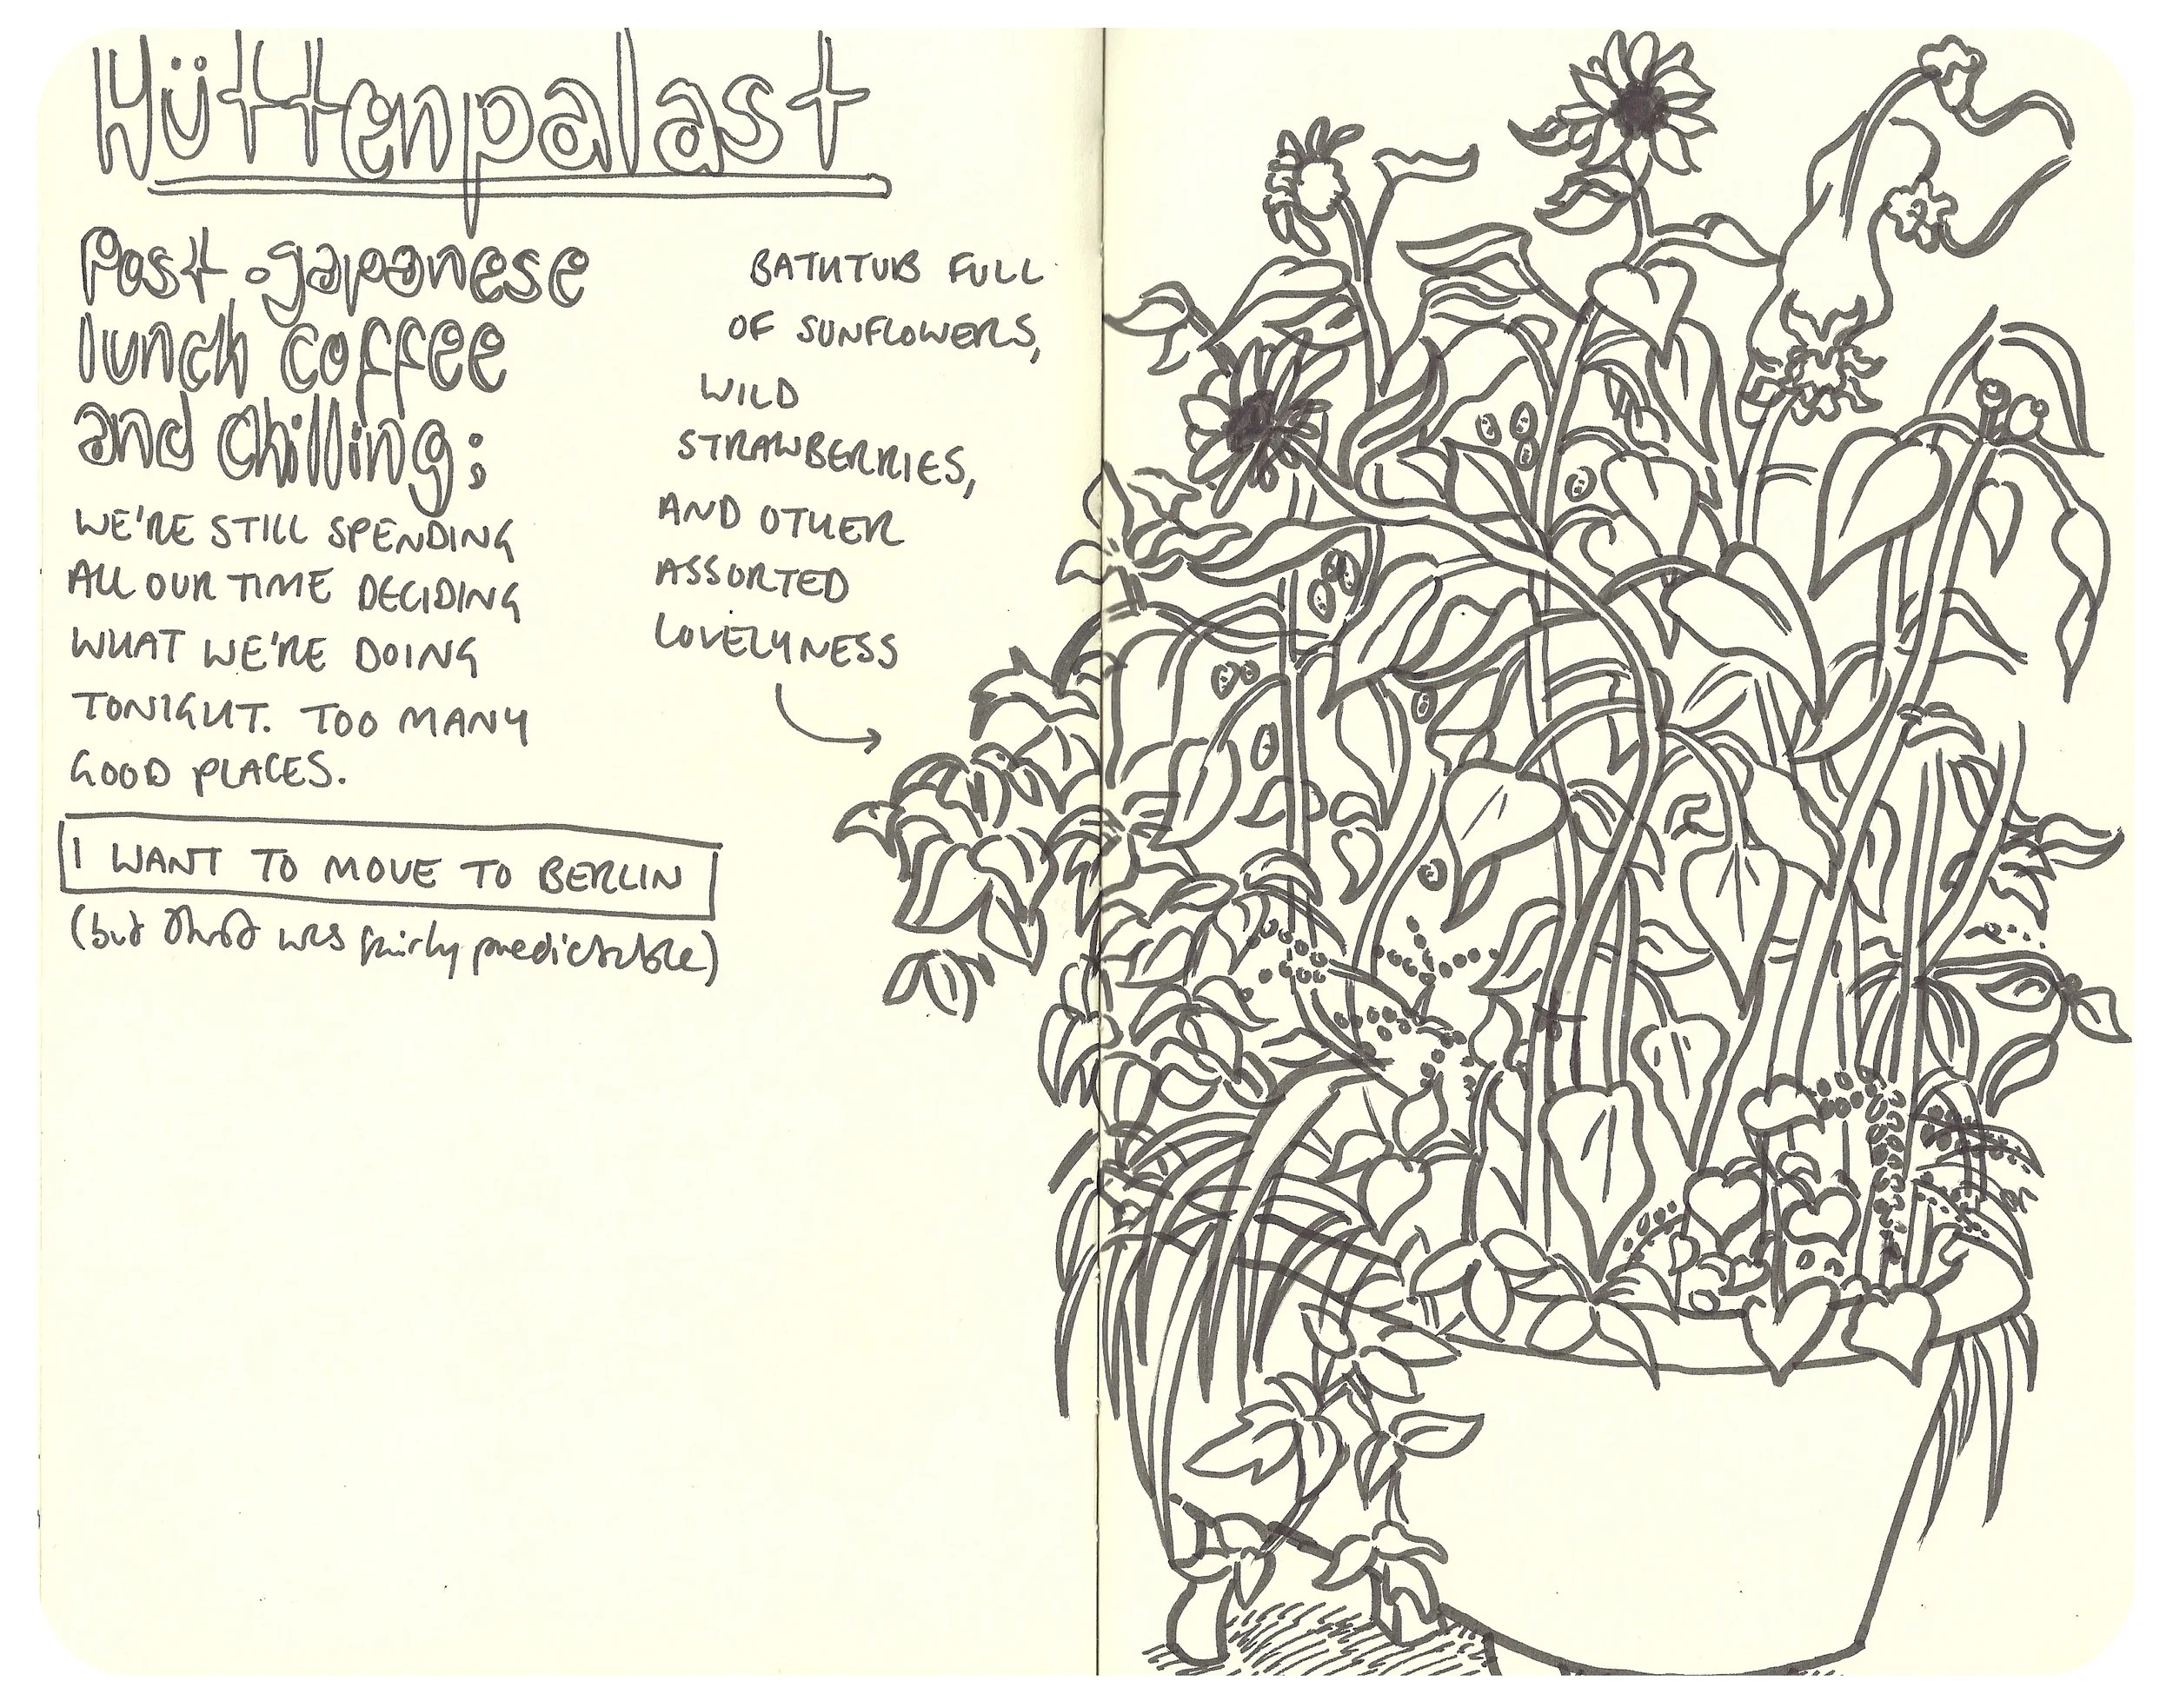 Hüttenpalast
Post-japanese
lunch coffee
and chilling;
WE'RE STILL SPENDING
ALL OUR TIME DECIDING
WHAT WE'RE DOING
TONIGHT. TOO MANY
GOOD PLACES.
I WANT TO MOVE TO BERLIN
(but that was fairly predictable)
BATHTUB FULL
OF SUNFLOWERS,
WILD
STRAWBERRIES,
AND OTHER
ASSORTED
LOVELYNESS